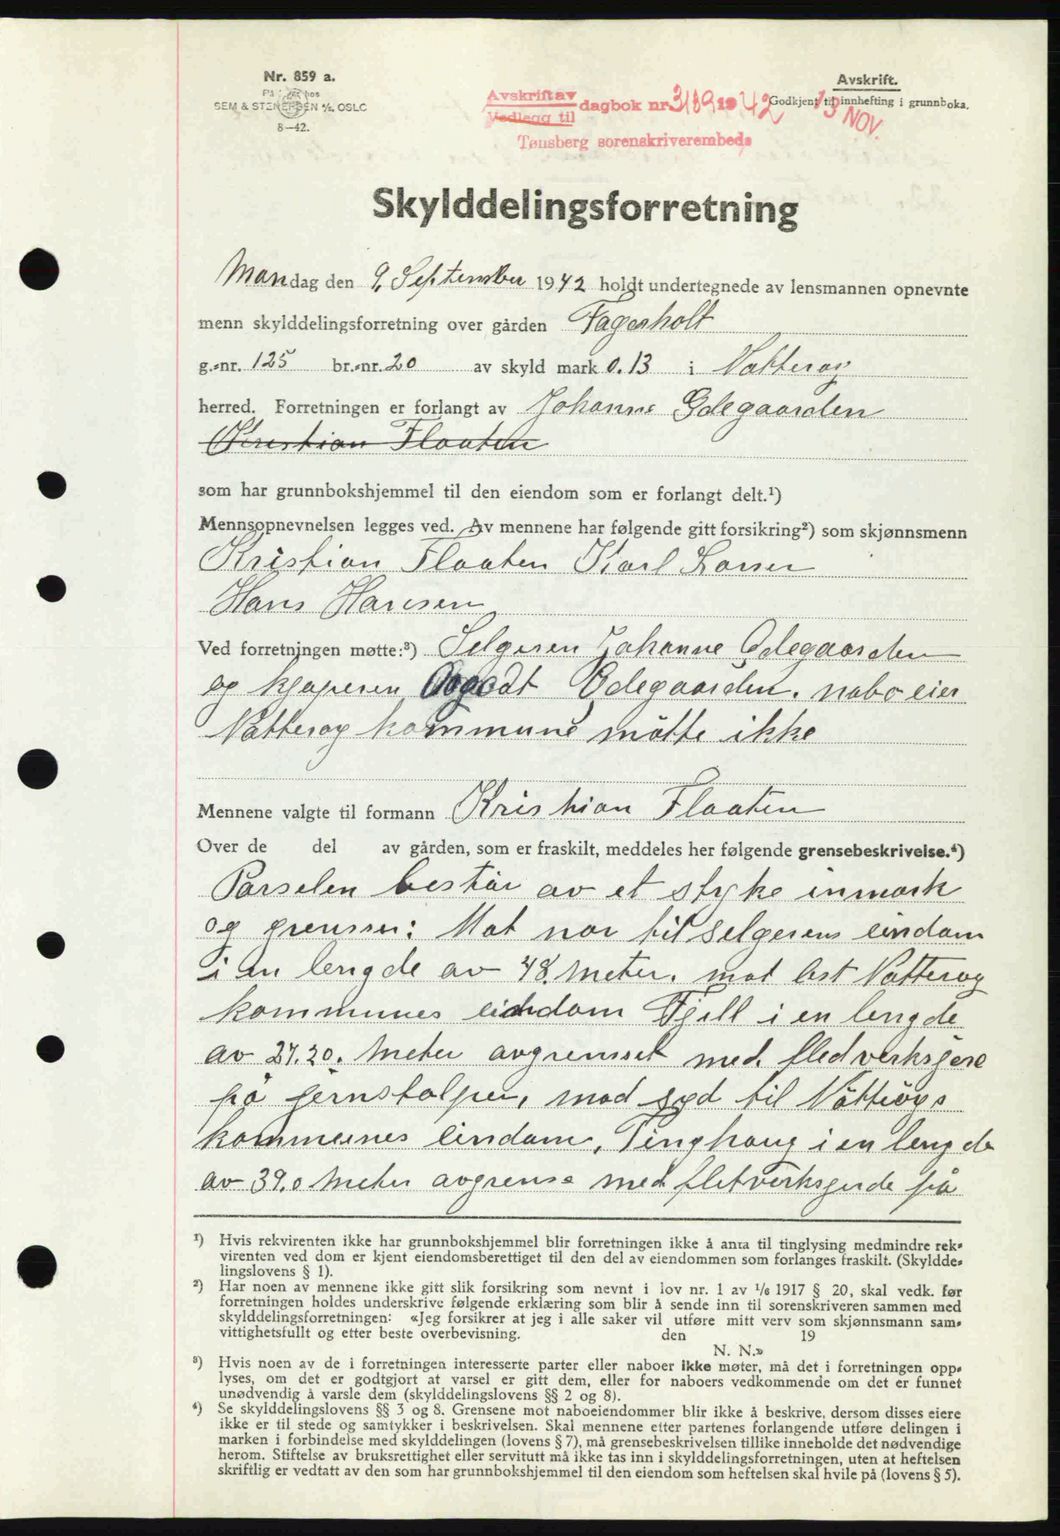 Nr. 859 a.
SEM & STENERSEN A/S, OSLO
8—42.
Avskrift av
Vedlegg til
dagbok nr. 3189 1942
Tønsberg sorenskriverembede
Avskrift.
Godkjent til innhefting i grunnboka.
13 NOV.
Skylddelingsforretning
Mandag den 9. September 1942 holdt undertegnede av lensmannen opnevnte
menn skylddelingsforretning over gården Fagerholt
g.-nr. 125 br.-nr. 20 av skyld mark 0.13 i Nøtterøy
herred. Forretningen er forlangt av Johanne Ødegaarden
Kristian Flaaten
som har grunnbokshjemmel til den eiendom som er forlangt delt.¹)
Mennsopnevnelsen legges ved. Av mennene har følgende gitt forsikring²) som skjønnsmenn
Kristian Flaaten Karl Larsen
Hans Hansen
Ved forretningen møtte:³) Selgeren Johanne Ødegaarden
og kjøperen Ødegaarden. nabo eier
Nøtterøy kommune møtte ikke
Mennene valgte til formann Kristian Flaaten
Over de del av gården, som er fraskilt, meddeles her følgende grensebeskrivelse.⁴)
Parselen består av et styke inmark
og grenser: Mot nor til selgerens eindom
i en lengde av 48. Meter. mot øst Nøtterøy
kommunes eindom Fjell i en lengde
av 27.20. Meter avgrenset med fledverksjere
på jernstolper, mod syd til Nøtterøys
kommunes eindom, Tinghaug i en lengde
av 39.0 Meter avgrense med fletverksgjerde på
¹) Hvis rekvirenten ikke har grunnbokshjemmel blir forretningen ikke å anta til tinglysing medmindre rek-
virenten ved dom er kjent eiendomsberettiget til den del av eiendommen som forlanges fraskilt. (Skyldde-
lingslovens § 1).
²) Har noen av mennene ikke gitt slik forsikring som nevnt i lov nr. 1 av 1/6 1917 § 20, skal vedk. før
forretningen holdes underskrive følgende erklæring som blir å sende inn til sorenskriveren sammen med
skylddelingsforretningen: «Jeg forsikrer at jeg i alle saker vil utføre mitt verv som skjønnsmann sam-
vittighetsfullt og etter beste overbevisning. den 19
N. N.»
³) Hvis noen av de i forretningen interesserte parter eller naboer ikke møter, må det i forretningen opp-
lyses, om det er godtgjort at varsel er gitt dem, eller for naboers vedkommende om det er funnet
unødvendig å varsle dem (skylddelingslovens §§ 2 og 8).
⁴) Se skylddelingslovens §§ 3 og 8. Grensene mot naboeiendommer blir ikke å beskrive, dersom disses eiere
ikke er til stede og samtykker i beskrivelsen. Skal mennene etter partenes forlangende utføre delingen i
marken i forbindelse med skylddelingen (lovens § 7), må grensebeskrivelsen tillike inneholde det nødvendige
herom. Stiftelse av bruksrettighet eller servitutt må ikke tas inn i skylddelingsforretningen, uten at heftelsen
skriftlig er vedtatt av den som har grunnbokshjemmel til den eiendom som heftelsen skal hvile på (lovens § 5).